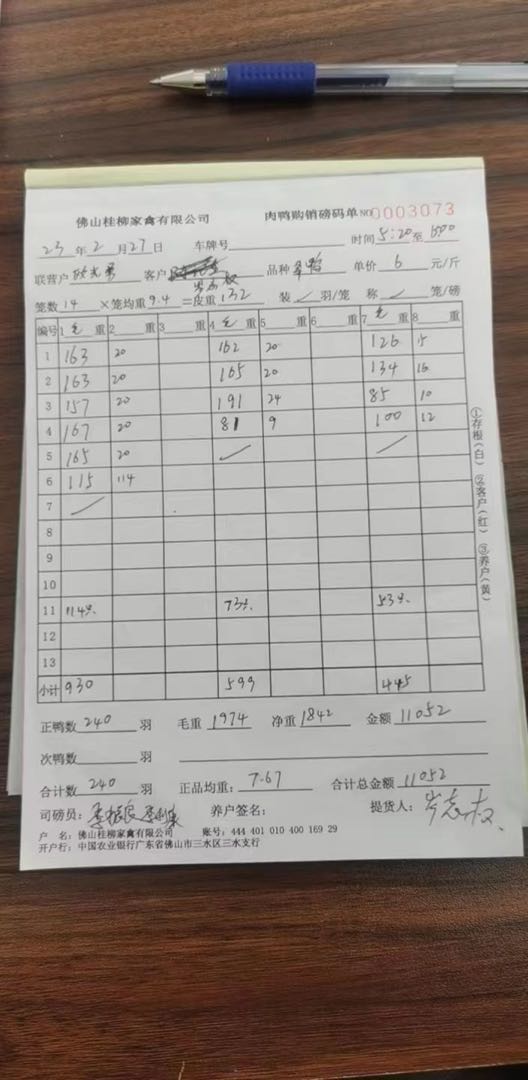 佛山桂柳家禽有限公司 肉鸭购销磅码单 NO 0003073
23 年 2 月 27 日 车牌号 时间 5:20 至
联营户 客户 品种 单价 6 元/斤
笼数 14 ×笼均重 9.4 =皮重 132 装 羽/笼 称 笼/磅
编号 1 毛 重 2 重 3 重 4 毛 重 5 重 6 重 7 毛 重 8 重
1 163 20 162 20 126 15
2 163 20 165 20 134 16
3 157 20 191 24 85 10
4 167 20 81 9 100 12
5 165 20
6 115 114
7
8
9
10
11 114只 73只 53只
12
13
小计 930 599 445
正鸭数 240 羽 毛重 1974 净重 1842 金额 11052
次鸭数 羽
合计数 240 羽 正品均重: 7.67 合计总金额 11052
司磅员: 养户签名: 提货人:
户 名: 佛山桂柳家禽有限公司 账号: 444 401 010 400 169 29
开户行: 中国农业银行广东省佛山市三水区三水支行
①存根(白) ②客户(红) ③养户(黄)